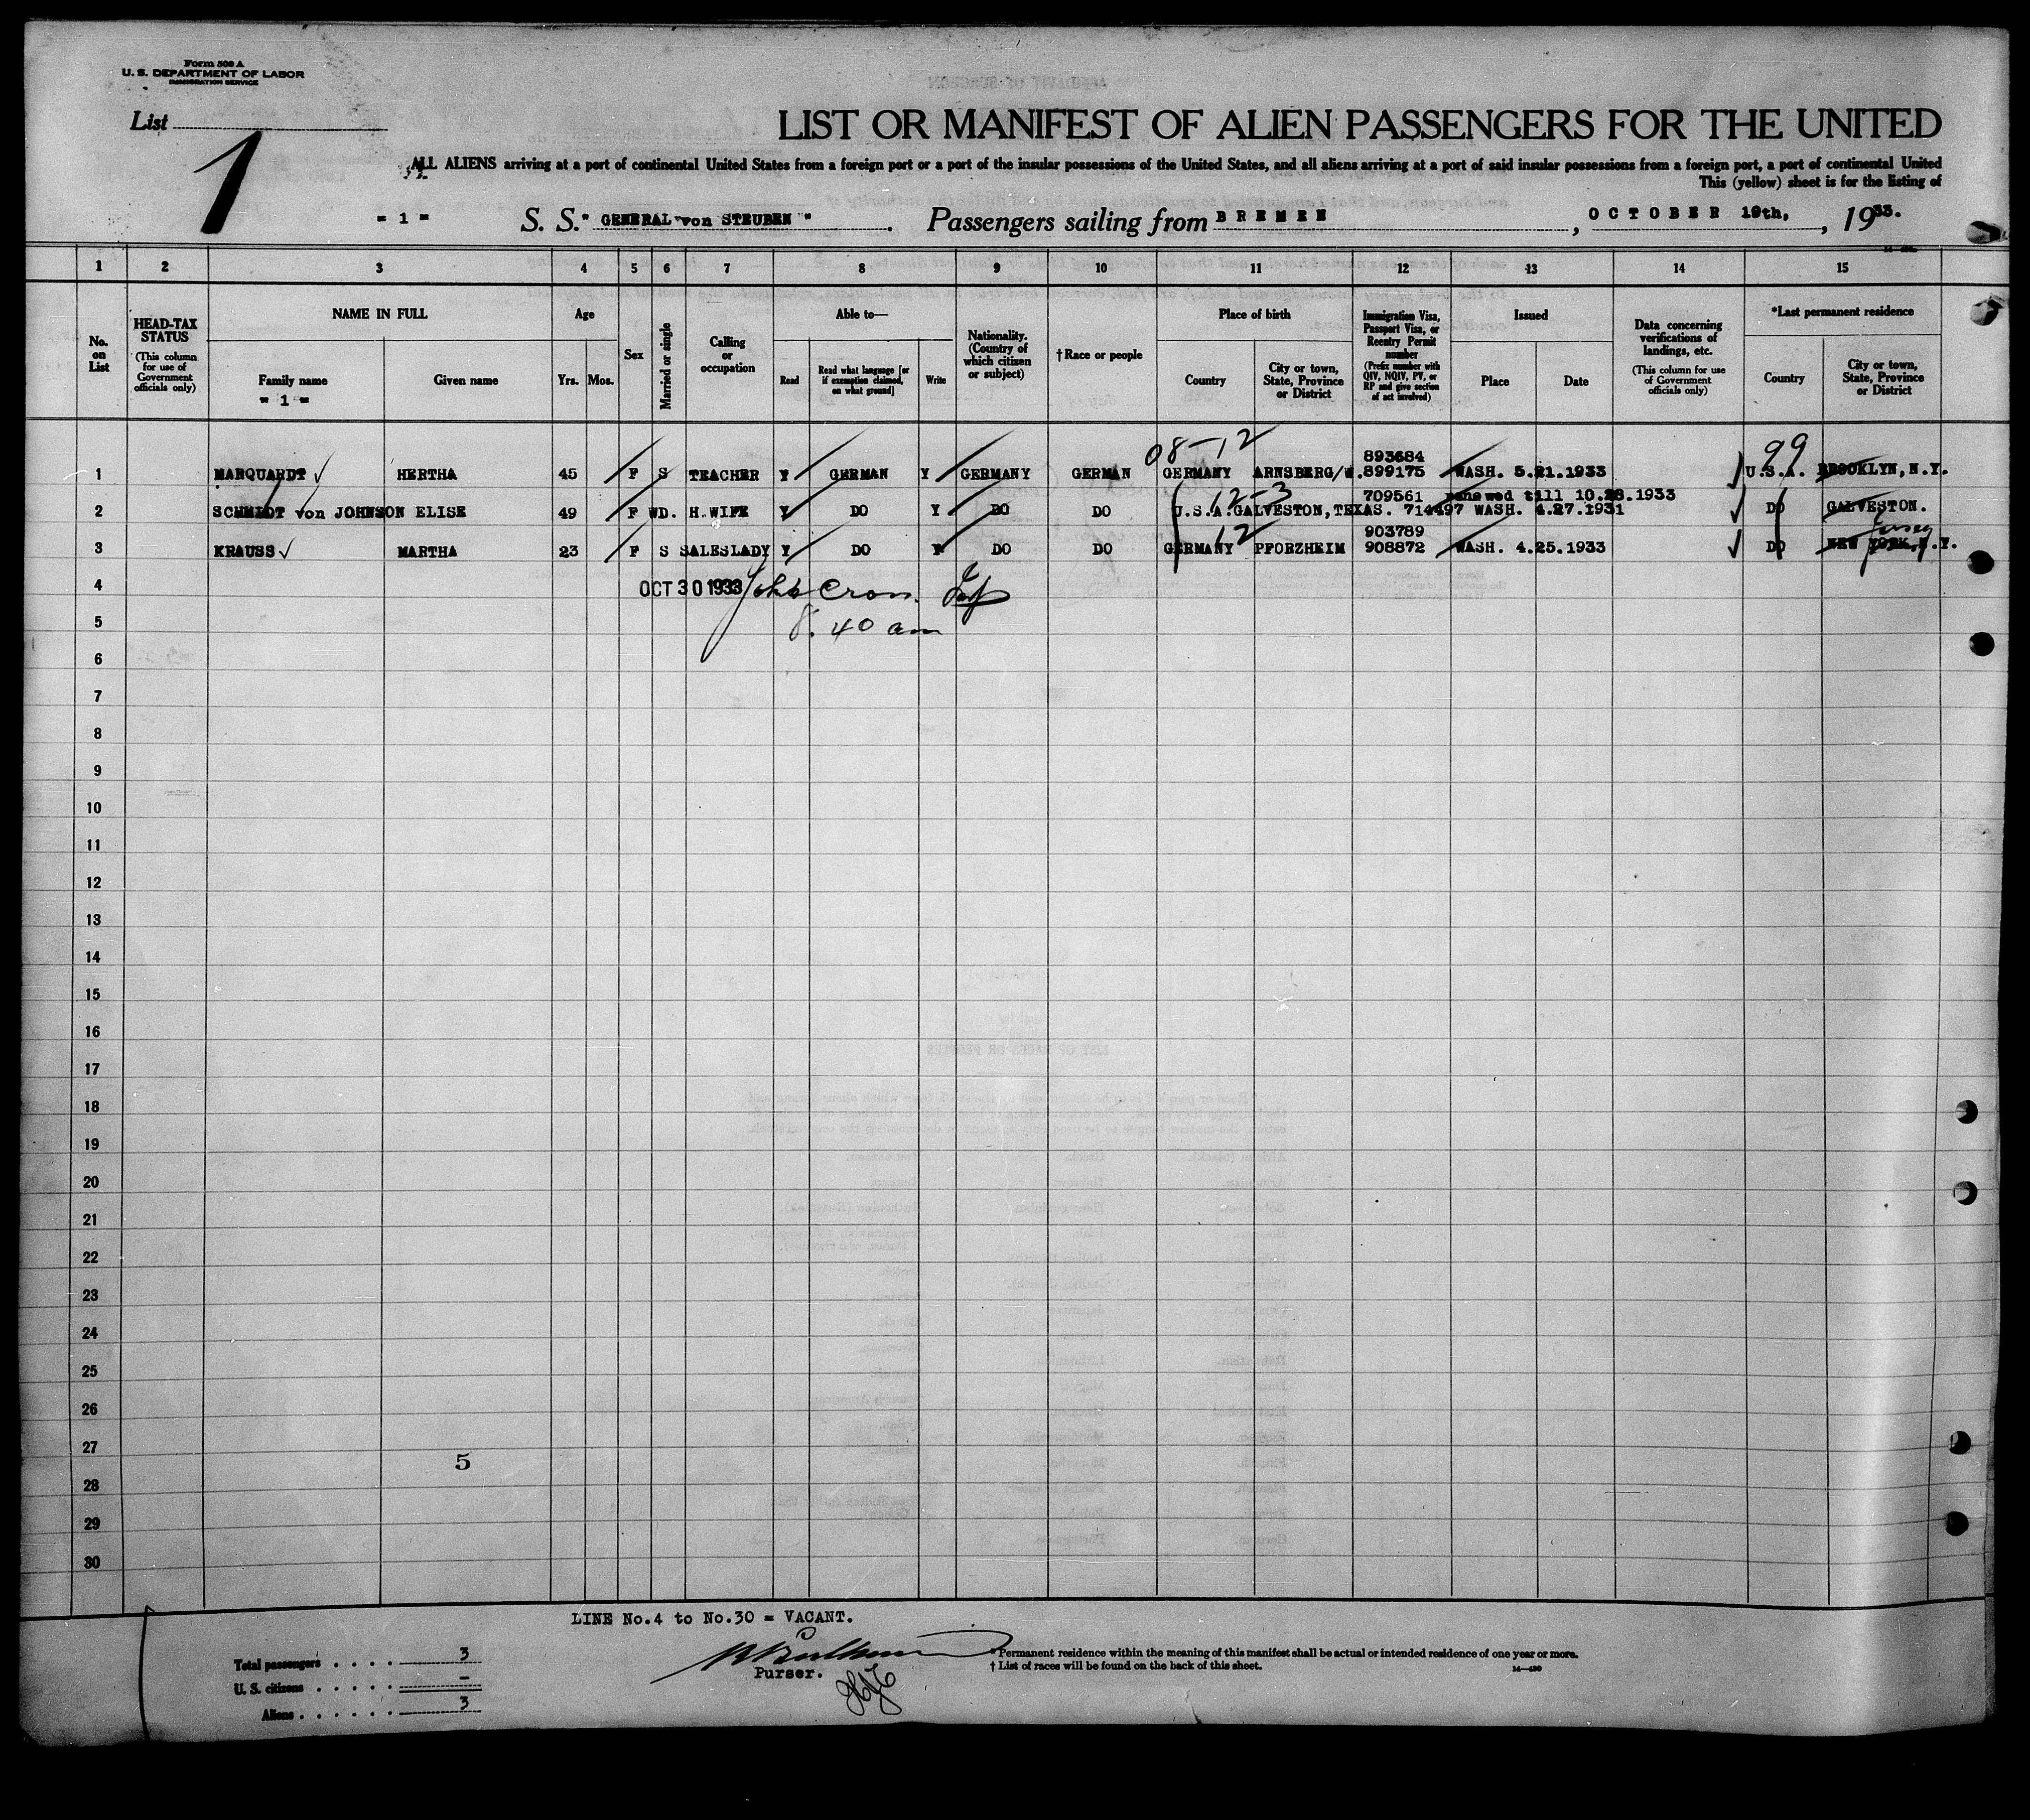 Form 500 A
U. S. DEPARTMENT OF LABOR
IMMIGRATION SERVICE
List
1
LIST OR MANIFEST OF ALIEN PASSENGERS FOR THE UNITED
ALL ALIENS arriving at a port of continental United States from a foreign port or a port of the insular possessions of the United States, and all aliens arriving at a port of said insular possessions from a foreign port, a port of continental United
This (yellow) sheet is for the listing of
= 1 = S. S. "GENERAL von STEUBEN". Passengers sailing from BREMEN, OCTOBER 19th, 1933.
1 2 3 4 5 6 7 8 9 10 11 12 13 14 15
No. on List
HEAD-TAX STATUS
(This column for use of Government officials only)
NAME IN FULL
Family name
= 1 =
Given name
Age
Yrs. Mos.
Sex
Married or single
Calling or occupation
Able to—
Read
Read what language [or if exemption claimed, on what ground]
Write
Nationality. (Country of which citizen or subject)
†Race or people
Place of birth
Country
City or town, State, Province or District
Immigration Visa, Passport Visa, or Reentry Permit number
(Prefix number with QIV, NQIV, PV, or RP and give section of act involved)
Issued
Place
Date
Data concerning verifications of landings, etc.
(This column for use of Government officials only)
*Last permanent residence
Country
City or town, State, Province or District
08-12
99
893684
1 MARQUARDT HERTHA 45 F S TEACHER Y GERMAN Y GERMANY GERMAN GERMANY ARNSBERG/W. 899175 WASH. 5.21.1933 U.S.A. BROOKLYN, N.Y.
12-3
709561 renewed till 10.28.1933
2 SCHMIDT von JOHNSON ELISE 49 F WD. H.WIFE Y DO Y DO DO U.S.A. GALVESTON, TEXAS. 714497 WASH. 4.27.1931 DO GALVESTON.
12
903789
Jersey
3 KRAUSS MARTHA 23 F S SALESLADY Y DO Y DO DO GERMANY PFORZHEIM 908872 WASH. 4.25.1933 DO NEW YORK, N.Y.
4 OCT 30 1933
5 8.40 am
6
7
8
9
10
11
12
13
14
15
16
17
18
19
20
21
22
23
24
25
26
27
5
28
29
30
LINE No.4 to No.30 = VACANT.
Total passengers . . . . 3
U. S. citizens . . . . . –
Aliens . . . . . . 3
Purser.
*Permanent residence within the meaning of this manifest shall be actual or intended residence of one year or more.
† List of races will be found on the back of this sheet.
14—430